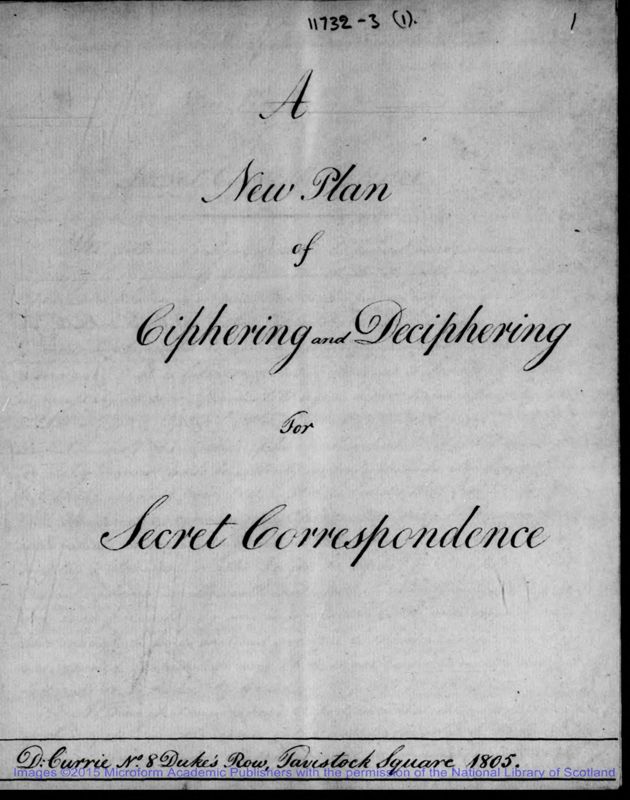 11732-3 (1).
1
A
New Plan
of
Ciphering and Deciphering
For
Secret Correspondence
D: Currie No. 8 Duke's Row, Tavistock Square 1805.
Images ©2015 Microform Academic Publishers with the permission of the National Library of Scotland